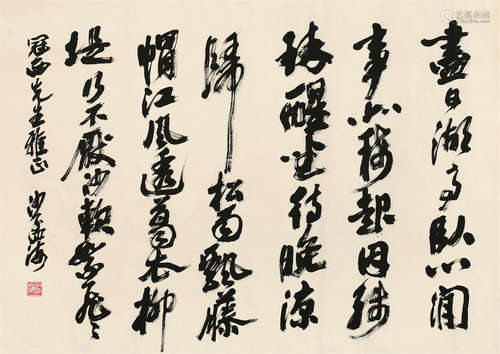 盡日湖亭臥心閒
事亦稀起因殘
醉醒坐待晚涼
歸 松雨飄藤
帽江風透葛衣柳
堤行不厭沙軟絮霏〻
冠西先生雅正 沙孟海